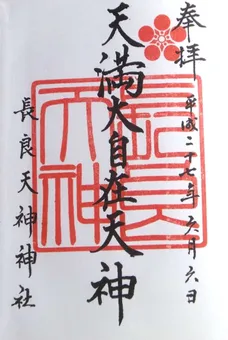 奉拝
平成二十七年六月六日
天満大自在天神
長良天神神社